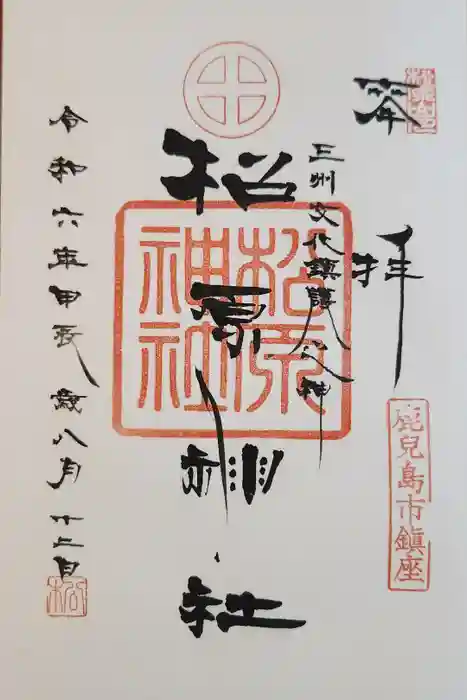 奉拝
三州文化鎮護 神
松原神社
松原神社
鹿兒島市鎮座
令和六年甲辰歳八月廿 日
松